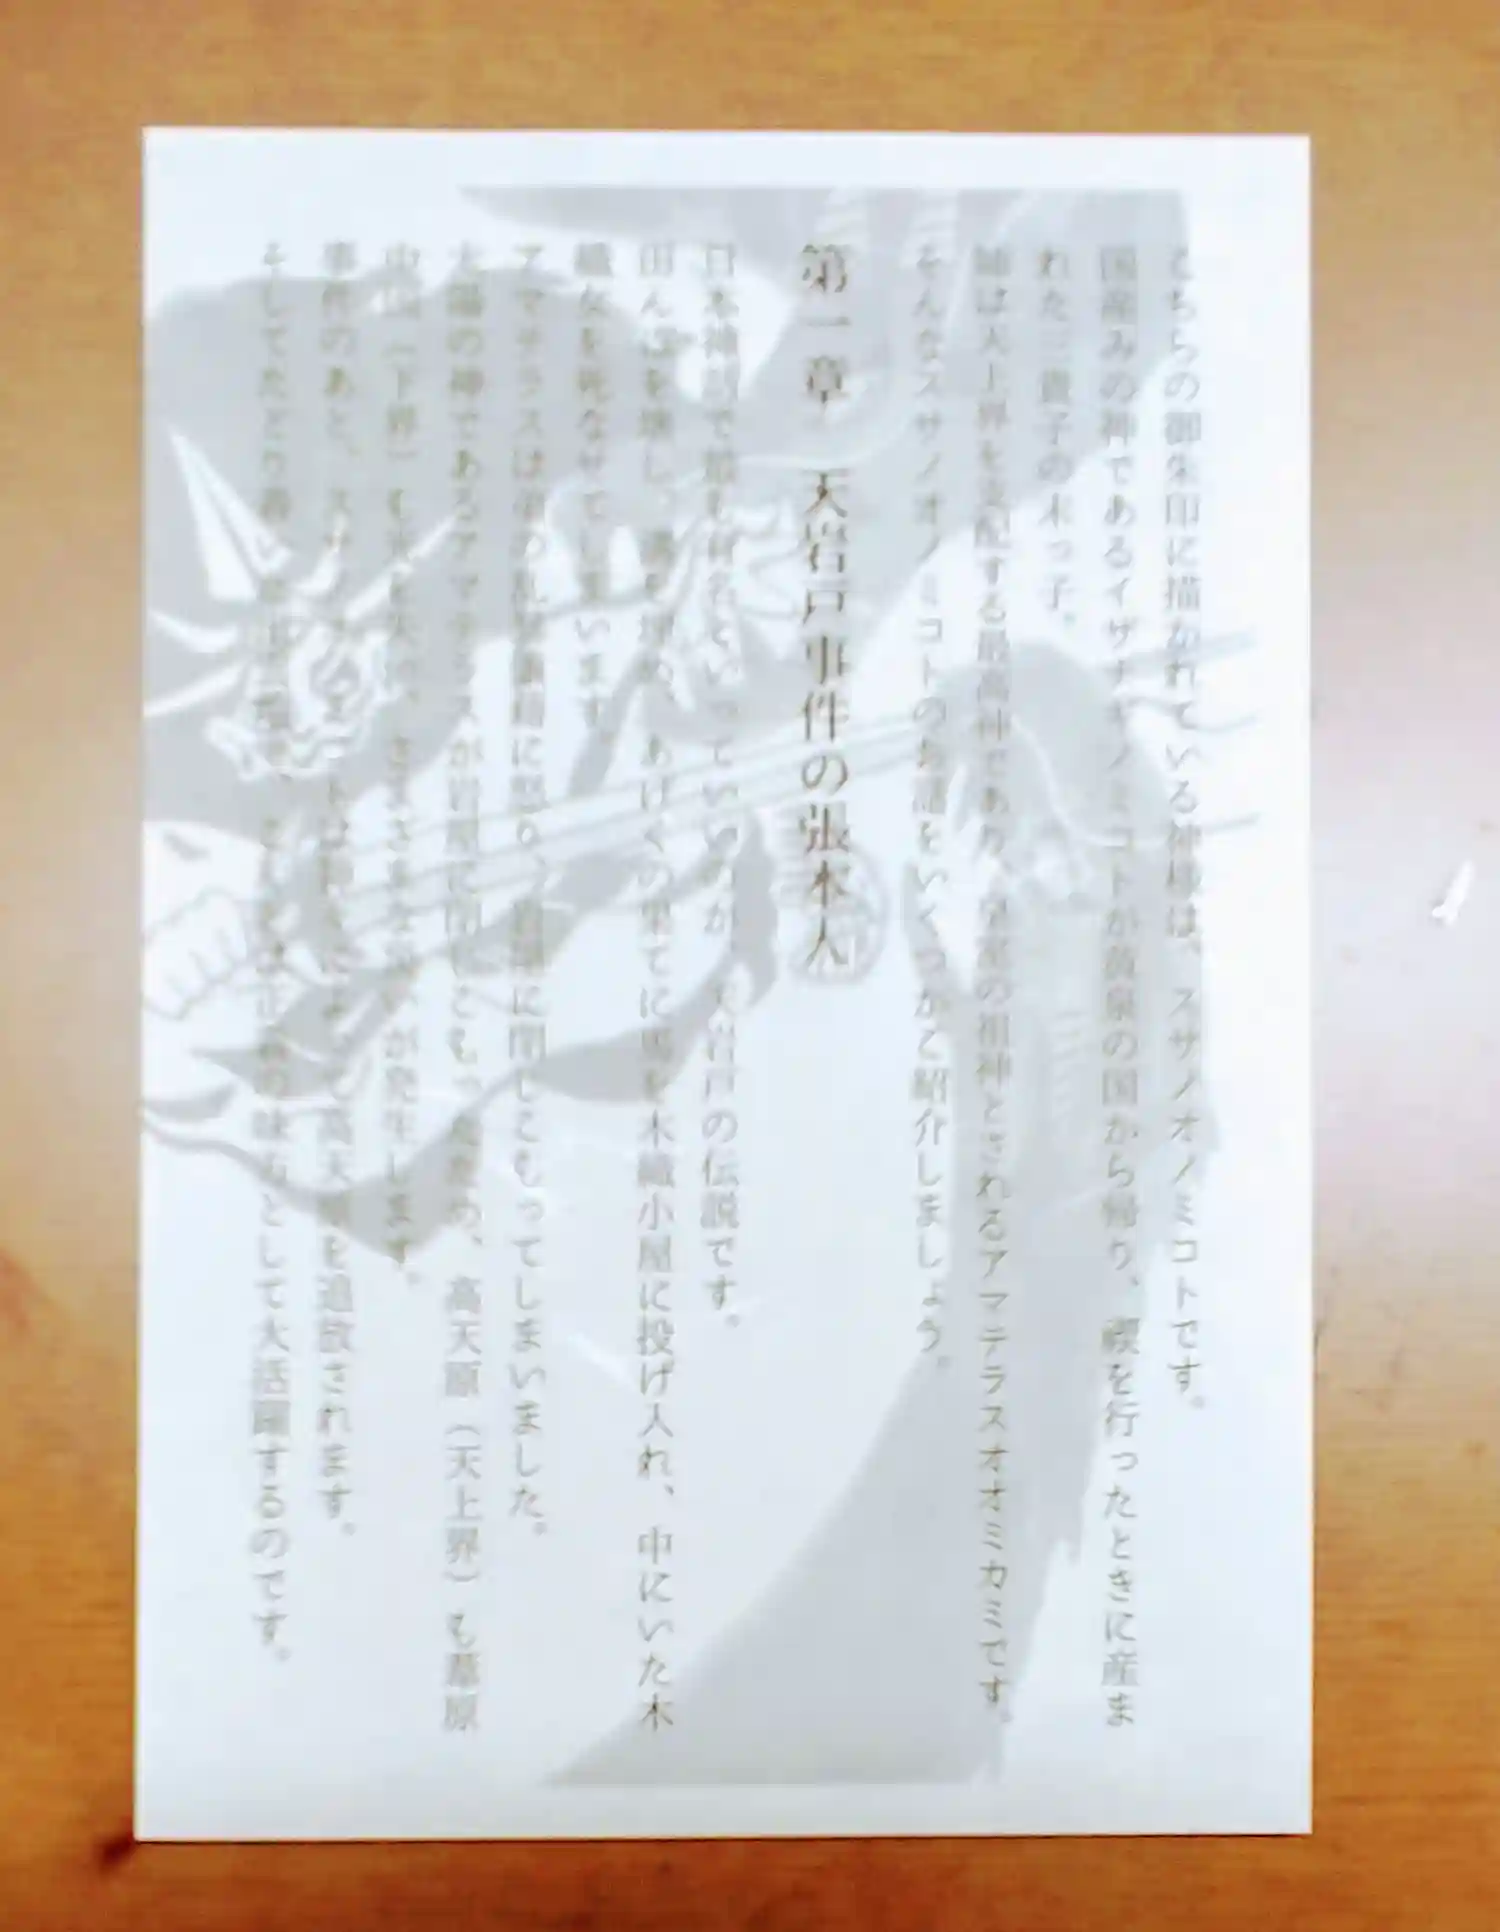 こちらの御朱印に描かれている神様は、スサノオノミコトです。
国産みの神であるイザナギノミコトが黄泉の国から帰り、禊を行ったときに産ま
れた三貴子の末っ子。
姉は天上界を支配する最高神であり、皇室の祖神とされるアマテラスオオミカミです。
そんなスサノオノミコトの物語をいくつかご紹介しましょう。
第一章 天岩戸事件の張本人
日本神話で最も有名といっていいのが、天岩戸の伝説です。
田んぼを壊し、溝を埋め、あげくの果てに馬を木織小屋に投げ入れ、中にいた木
織女を死なせてしまいます。
アマテラスは弟の乱暴狼藉に怒り、岩屋に閉じこもってしまいました。
太陽の神であるアマテラスが岩屋に閉じこもったため、高天原(天上界)も葦原
中国(下界)も光を失い、さまざまな災いが発生します。
事件のあと、スサノオノミコトは高天原を追放されます。
そしてたどり着いた 正義の味方として大活躍するのです。